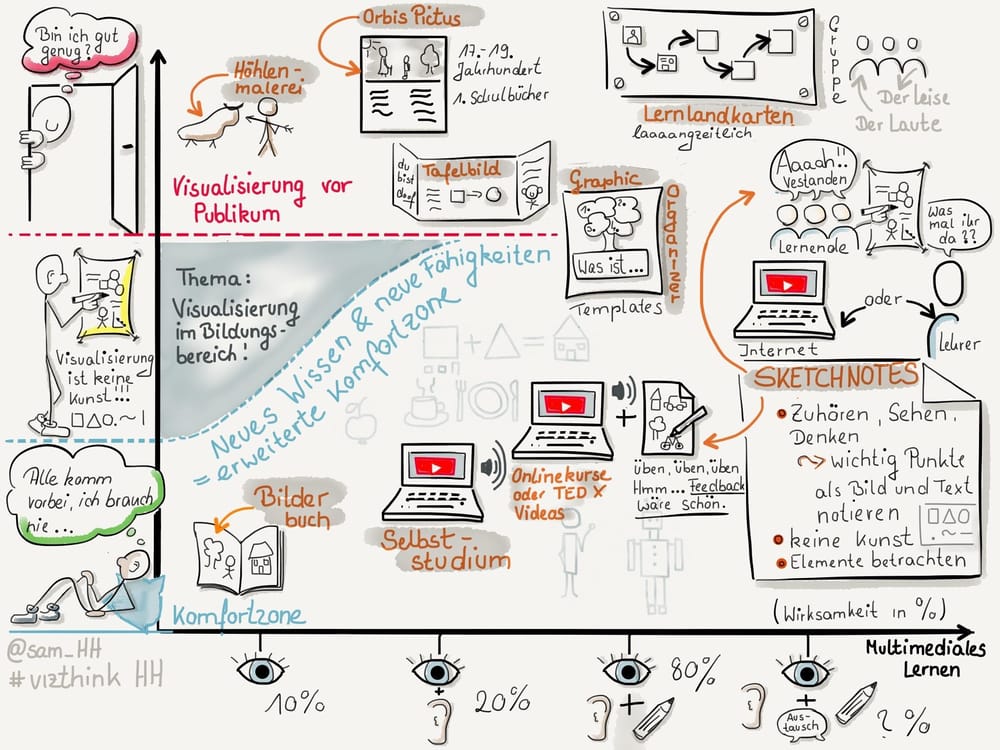 Bin ich gut
genug?
Höhlen-
malerei
Orbis Pictus
17.-19.
Jahrhundert
1. Schulbücher
Gruppe
Der Leise
Der Laute
Lernlandkarten
laaaangzeitlich
Visualisierung vor
Publikum
du
bist
doof
Tafelbild
Graphic
Organizer
1.
2.
Was ist...
Templates
Aaaah!!
Vestanden
Lernende
Was
mal ihr
da??
oder
Internet
Lehrer
Visualisierung
ist keine
Kunst!!!
Thema:
Visualisierung
im Bildungs-
bereich!
Neues Wissen & neue Fähigkeiten
= erweiterte Komfortzone
SKETCHNOTES
Zuhören, Sehen,
Denken
wichtig Punkte
als Bild und Text
notieren
keine Kunst
Elemente betrachten
Onlinekurse
oder TED X
Videas
+
Üben, Üben, Üben
Hmm... Feedback
wäre schön.
Selbst-
studium
Alle komm
vorbei, ich brauch
nie...
Bilder
buch
Komfortzone
(Wirksamkeit in %)
Multimediales
Lernen
@sam_HH
#vizthink HH
10%
+
20%
+
80%
+
Aus-
tausch
? %